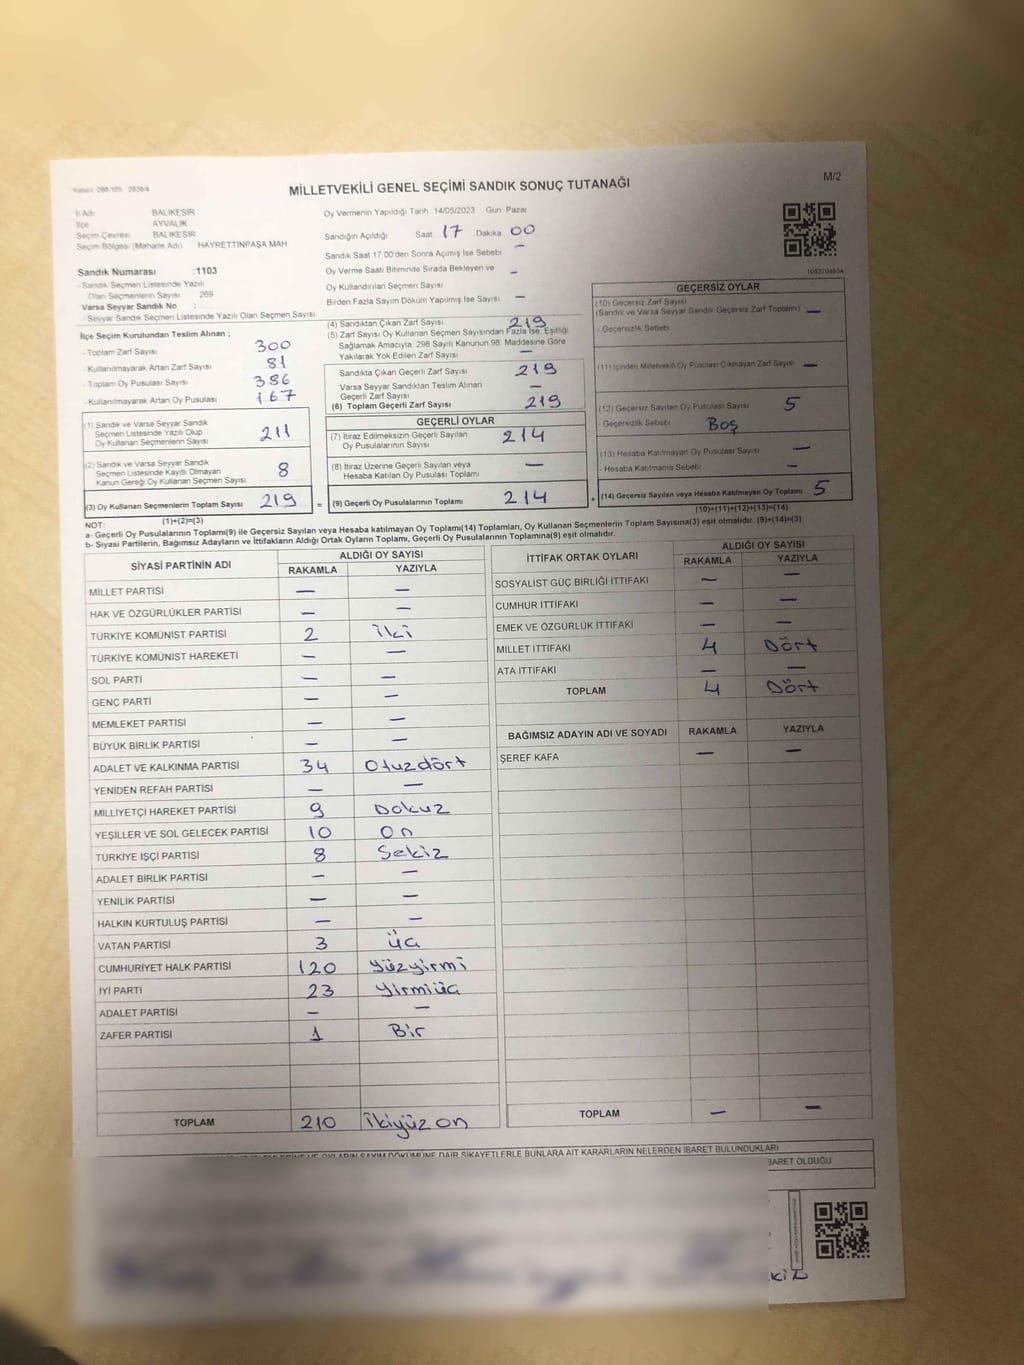 MİLLETVEKİLİ GENEL SEÇİMİ SANDIK SONUÇ TUTANAĞI
M/2
İl Adı BALIKESİR
İlçe AYVALIK
Seçim Çevresi BALIKESİR
Seçim Bölgesi (Mahalle Adı) HAYRETTİNPAŞA MAH
Sandık Numarası :1103
- Sandık Seçmen Listesinde Yazılı
Olan Seçmenlerin Sayısı 269
Varsa Seyyar Sandık No :
- Seyyar Sandık Seçmen Listesinde Yazılı Olan Seçmen Sayısı
Oy Vermenin Yapıldığı Tarih 14/05/2023 Gün Pazar
Sandığın Açıldığı Saat 17 Dakika 00
Sandık Saat 17.00'den Sonra Açımış İse Sebebi –
Oy Verme Saati Bitiminde Sırada Bekleyen ve –
Oy Kullandırılan Seçmen Sayısı
Birden Fazla Sayım Döküm Yapılmış İse Sayısı –
1083704804
İlçe Seçim Kurulundan Teslim Alınan ;
- Toplam Zarf Sayısı 300
- Kullanılmayarak Artan Zarf Sayısı 81
- Toplam Oy Pusulası Sayısı 386
- Kullanılmayarak Artan Oy Pusulası 167
(1) Sandık ve Varsa Seyyar Sandık
Seçmen Listesinde Yazılı Olup
Oy Kullanan Seçmenlerin Sayısı 211
(2) Sandık ve Varsa Seyyar Sandık
Seçmen Listesinde Kayıtlı Olmayan
Kanun Gereği Oy Kullanan Seçmen Sayısı 8
(3) Oy Kullanan Seçmenlerin Toplam Sayısı 219 =
(1)+(2)=(3)
(4) Sandıktan Çıkan Zarf Sayısı 219
(5) Zarf Sayısı Oy Kullanan Seçmen Sayısından Fazla İse, Eşitliği
Sağlamak Amacıyla, 298 Sayılı Kanunun 98. Maddesine Göre
Yakılarak Yok Edilen Zarf Sayısı –
Sandıkta Çıkan Geçerli Zarf Sayısı 219
Varsa Seyyar Sandıktan Teslim Alınan
Geçerli Zarf Sayısı –
(6) Toplam Geçerli Zarf Sayısı 219
GEÇERLİ OYLAR
(7) İtiraz Edilmeksizin Geçerli Sayılan
Oy Pusulalarının Sayısı 214
(8) İtiraz Üzerine Geçerli Sayılan veya
Hesaba Katılan Oy Pusulası Toplamı –
(9) Geçerli Oy Pusulalarının Toplamı 214 +
GEÇERSİZ OYLAR
(10) Geçersiz Zarf Sayısı
(Sandık ve Varsa Seyyar Sandık Geçersiz Zarf Toplamı) –
- Geçersizlik Sebebi
(11) İçinden Milletvekili Oy Pusulası Çıkmayan Zarf Sayısı –
(12) Geçersiz Sayılan Oy Pusulası Sayısı 5
- Geçersizlik Sebebi Boş
(13) Hesaba Katılmayan Oy Pusulası Sayısı –
- Hesaba Katılmama Sebebi –
(14) Geçersiz Sayılan veya Hesaba Katılmayan Oy Toplamı 5
(10)+(11)+(12)+(13)=(14)
NOT:
a- Geçerli Oy Pusulalarının Toplamı(9) ile Geçersiz Sayılan veya Hesaba katılmayan Oy Toplamı(14) Toplamları, Oy Kullanan Seçmenlerin Toplam Sayısına(3) eşit olmalıdır. (9)+(14)=(3)
b- Siyasi Partilerin, Bağımsız Adayların ve İttifakların Aldığı Ortak Oyların Toplamı, Geçerli Oy Pusulalarının Toplamına(9) eşit olmalıdır.
SİYASİ PARTİNİN ADI ALDIĞI OY SAYISI
RAKAMLA YAZIYLA
MİLLET PARTİSİ – –
HAK VE ÖZGÜRLÜKLER PARTİSİ – –
TÜRKİYE KOMÜNİST PARTİSİ 2 iki
TÜRKİYE KOMÜNİST HAREKETİ – –
SOL PARTİ – –
GENÇ PARTİ – –
MEMLEKET PARTİSİ – –
BÜYÜK BİRLİK PARTİSİ – –
ADALET VE KALKINMA PARTİSİ 34 Otuzdört
YENİDEN REFAH PARTİSİ – –
MİLLİYETÇİ HAREKET PARTİSİ 9 Dokuz
YEŞİLLER VE SOL GELECEK PARTİSİ 10 On
TÜRKİYE İŞÇİ PARTİSİ 8 Sekiz
ADALET BİRLİK PARTİSİ – –
YENİLİK PARTİSİ – –
HALKIN KURTULUŞ PARTİSİ – –
VATAN PARTİSİ 3 üç
CUMHURİYET HALK PARTİSİ 120 Yüzyirmi
İYİ PARTİ 23 Yirmiüç
ADALET PARTİSİ – –
ZAFER PARTİSİ 1 Bir
TOPLAM 210 İkiyüz on
İTTİFAK ORTAK OYLARI ALDIĞI OY SAYISI
RAKAMLA YAZIYLA
SOSYALİST GÜÇ BİRLİĞİ İTTİFAKI – –
CUMHUR İTTİFAKI – –
EMEK VE ÖZGÜRLÜK İTTİFAKI – –
MİLLET İTTİFAKI 4 Dört
ATA İTTİFAKI – –
TOPLAM 4 Dört
BAĞIMSIZ ADAYIN ADI VE SOYADI RAKAMLA YAZIYLA
ŞEREF KAFA – –
TOPLAM – –
OYLARIN SAYIM DÖKÜMÜNE DAİR ŞİKAYETLERLE BUNLARA AİT KARARLARIN NELERDEN İBARET BULUNDUKLARI
İBARET OLDUĞU